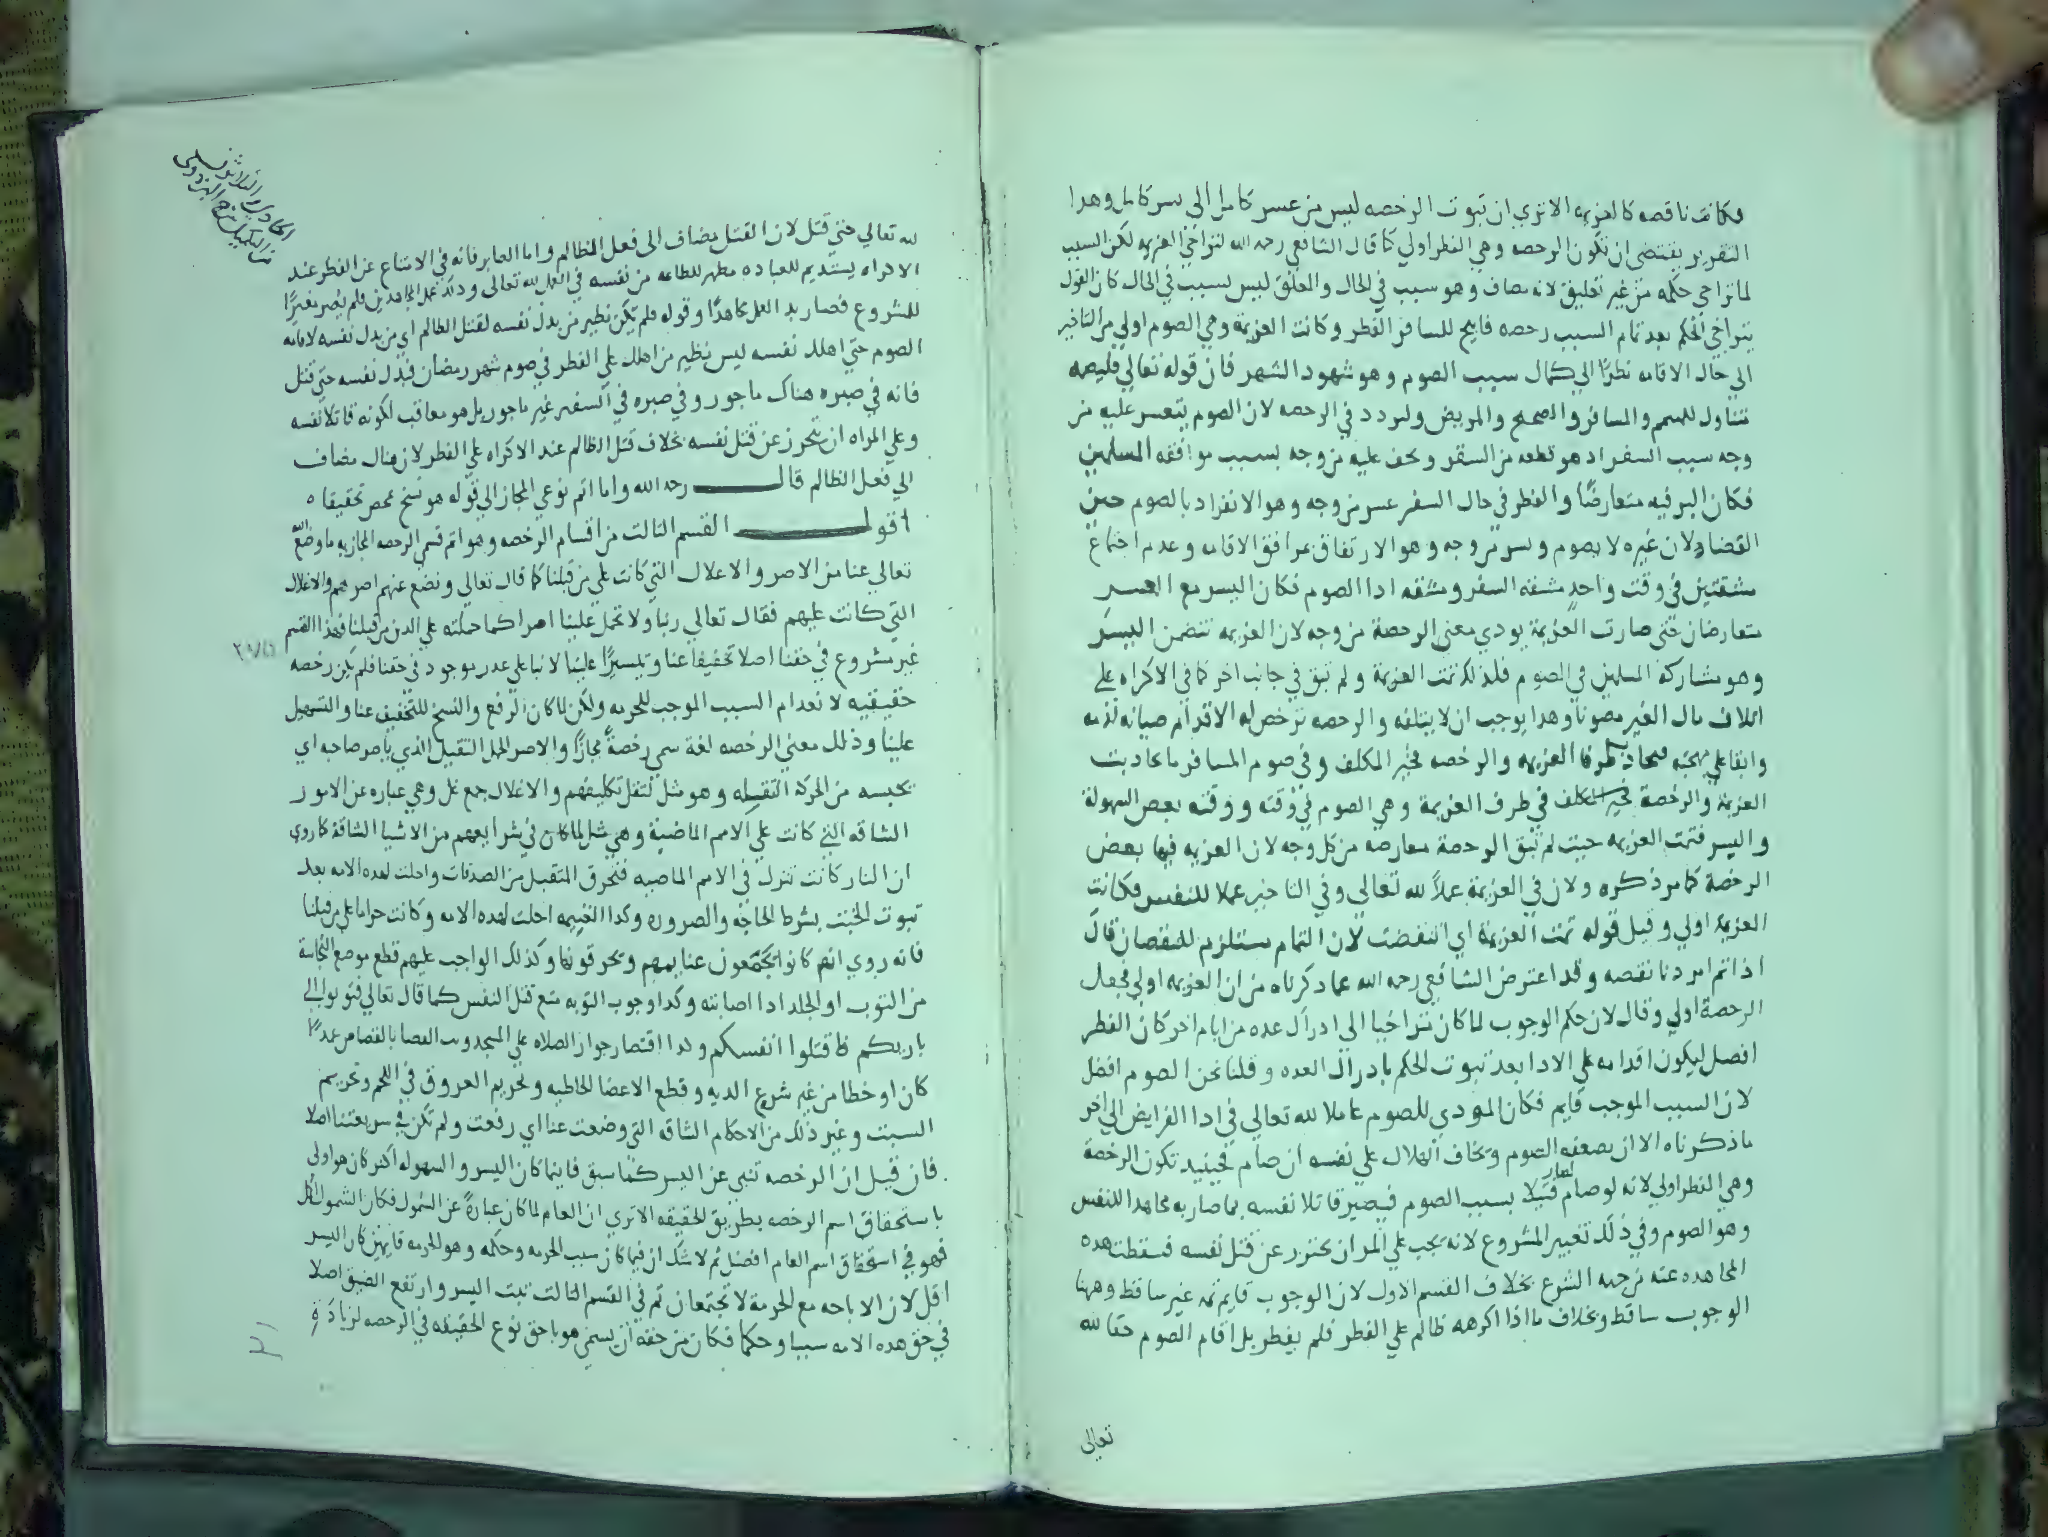 فكانت ناقصه كالعزيمه الا تري ان ثبوت الرخصه ليس من عسر كامل الى يسر كامل وهدا
التقرير يقتضي ان تكون الرخصه وهي الفطر اولي كما قال الشافعي رحمه الله لتراخي العزيمه لكن السبب
لما تراخي حكمه من غير تعليق لانه مضاف وهو سبب في الحال والمعلق ليس بسبب في الحال كان القول
بتراخي الحكم بعد تمام السبب رخصه فابيح للمسافر الفطر وكانت العزيمة وهي الصوم اولي من التاخير
الي حال الاقامه نظرًا الي كمال سبب الصوم وهو شهود الشهر فان قوله تعالي فليصمه
تتناول للمقيم والمسافر والصحيح والمريض ولتردد في الرخصه لان الصوم يتعسر عليه من
وجه سبب السفر اد هو قطعه من السقر ويخف عليه من وجه بسبب موافقه المسلمين
فكان اليسر فيه متعارضًا والفطر في حال السفر عسر من وجه وهو الانفراد بالصوم حين
القضاء ولان غيره لا يصوم ويسر من وجه وهو الارتفاق بمرافق الاقامه وعدم اجتماع
مشقتين في وقت واحدٍ مشقه السفر ومشقه ادا الصوم فكان اليسر مع العسر
متعارضان حتي صارت العزيمة يودي معني الرخصة من وجه لان العزيمه تتضمن اليسر
وهو مشاركة المسلمين في الصوم فلذلك تمت العزيمة ولم تبق في جانب اخر كما في الاكراه علي
اتلاف مال الغير مصونا وهدا يوجب ان لا يتلفه والرخصه ترخص له الاقدام صيانه لدمه
وابقا علي مهجته طرفا العزيمه والرخصه فخير المكلف وفي صوم المسافر ما تحادبت
العزيمة والرخصة فخير المكلف في طرف العزيمة وهي الصوم في وقته ووقته بعض السهولة
واليسر فتمت العزيمه حيث لم تبق الرخصة معارضه من كل وجه لان العزيمه فيها بعض
الرخصة كما مر ذكره ولان في العزيمة عملاً لله تعالى وفي التاخير عملا للنفس فكانت
العزيمة اولي وقيل قوله تمت العزيمة اي انتقضت لان التمام مستلزم للنقصان قال
اذا تم امر دنا نقصه وقد اعترض الشافعي رحمه الله عما دكرناه من ان العزيمه اولي فجعل
الرخصة اولي وقال لان حكم الوجوب لما كان متراخيا الي ادراك عده من ايام اخر كان الفطر
افضل ليكون اقدامه علي الادا بعد ثبوت الحكم بادراك العده وقلنا نحن الصوم افضل
لان السبب الموجب قايم فكان المودي للصوم عاملا لله تعالي في ادا الفرايض الي اخر
ما ذكرناه الا ان يضعفه الصوم ويخاف الهلاك علي نفسه ان صام فحينيد تكون الرخصة
وهي الفطر اولي لانه لو صام لصار قتيلا بسبب الصوم فيصير قاتلا نفسه بما صار به مجاهدا للنفس
وهو الصوم وفي ذلك تغيير المشروع لانه يجب علي المر ان يحترز عن قتل نفسه فسقطت هده
المجاهده عنه من جهه الشرع بخلاف القسم الاول لان الوجوب قايم ثمه غير ساقط وههنا
الوجوب ساقط وبخلاف ما اذا اكرهه ظالم علي الفطر فلم يفطر بل اقام الصوم حقا لله
تعالى
الحادي والثلاثون
من التكميل شرح البزدوي
لله تعالي حتي قتل لان القتل يضاف الى فعل الظالم واما العابد فانه في الامتناع عن الفطر عند
الاكراه يستديم للعباده مظهر للطاعه من نفسه في العمل لله تعالى ودلك عمل المجاهدين فلم يصر مغيرًا
للمشروع فصار بدا العمل مجاهدًا وقوله فلم يكن نظير من بدل نفسه لقتل الظالم اي من بدل نفسه لاقامه
الصوم حتي اهلك نفسه ليس نظير من اهلك علي الفطر في صوم شهر رمضان فبدل نفسه حتي قتل
فانه في صبره هناك ماجور وفي صبره في السفر غير ماجور بل هو معاقب لكونه قاتلا نفسه
وعلي المراه ان تتحرز عن قتل نفسه بخلاف قتل الظالم عند الاكراه علي الفطر لان هناك مضاف
الي فعل الظالم قال رحمه الله واما اتم نوعي المجاز الي قوله هو نسخ محض تحقيقا ه
اقول القسم الثالث من اقسام الرخصه وهو اتم قسمي الرخصه المجازيه ما وضع الله
تعالي عنا من الاصر والاغلال التي كانت علي من قبلنا كما قال تعالي ويضع عنهم اصرهم والاغلال
التي كانت عليهم فقال تعالي ربنا ولا تحمل علينا اصرا كما حملته علي الذين من قبلنا فهذا القسم
غير مشروع في حقنا اصلا تخفيفا عنا وتيسيرًا علينا لا بنا علي عدر موجود في حقنا فلم يكن رخصه
حقيقيه لانعدام السبب الموجب للحرمه ولكن لما كان الرفع والنسخ للتخفيف عنا والتسهيل
علينا وذلك معني الرخصه لغة سمي رخصةً مجازًا والاصر الحمل الثقيل الذي ياصر صاحبه اي
يحبسه من الحركة الثقله وهو مثل لثقل تكليفهم والاغلال جمع غل وهي عباره عن الامور
الشاقه التي كانت علي الامم الماضية وهي مثل لما كان في شرايعهم من الاشيا الشاقة كما روي
ان النار كانت تنزل في الامم الماضيه فتحرق المتقبل من الصدقات واحلت لهده الامه بعد
ثبوت الخبث بشرط الحاجه والضروره وكدا الغنيمه احلت لهده الامه وكانت حراما علي من قبلنا
فانه روي انهم كانوا يجمعون غنايمهم ويحرقونها وكذلك الواجب عليهم قطع موضع النجاسة
من الثوب او الجلد ادا اصابته وكدا وجوب التوبه مع قتل النفس كما قال تعالي فتوبوا الي
باريكم فاقتلوا انفسكم وكدا اقتصار جواز الصلاه علي المسجد وبت القضا بالقصاص عمدًا
كان او خطا من غير شروع الديه وقطع الاعضا الخاطيه وتحريم العروق في اللحم وتحريم
السبت وغير ذلك من الاحكام الشاقه التي وضعت عنا اي رفعت ولم تكن في شريعتنا اصلا
فان قيل ان الرخصه تنبي عن اليسر كما سبق فاينما كان اليسر والسهوله اكثر كان هو اولي
باستحقاق اسم الرخصه بطريق الحقيقه الا تري ان العام لما كان عبارةً عن الشمول فكان الشمول اكمل
فهو في استحقاق اسم العام افضل ثم لا شك ان فيما كان سبب الحرمه وحكمه وهو الحرمه قايمين كان اليسر
اقل لان الاباحه مع الحرمة لا تجتمعان ثم في القسم الثالث ثبت اليسر وارتفع الضيق اصلا
في حق هده الامه سببا وحكما فكان من حقه ان يسمي هو باحق نوع الحقيقه في الرخصه لزيادة
٣١